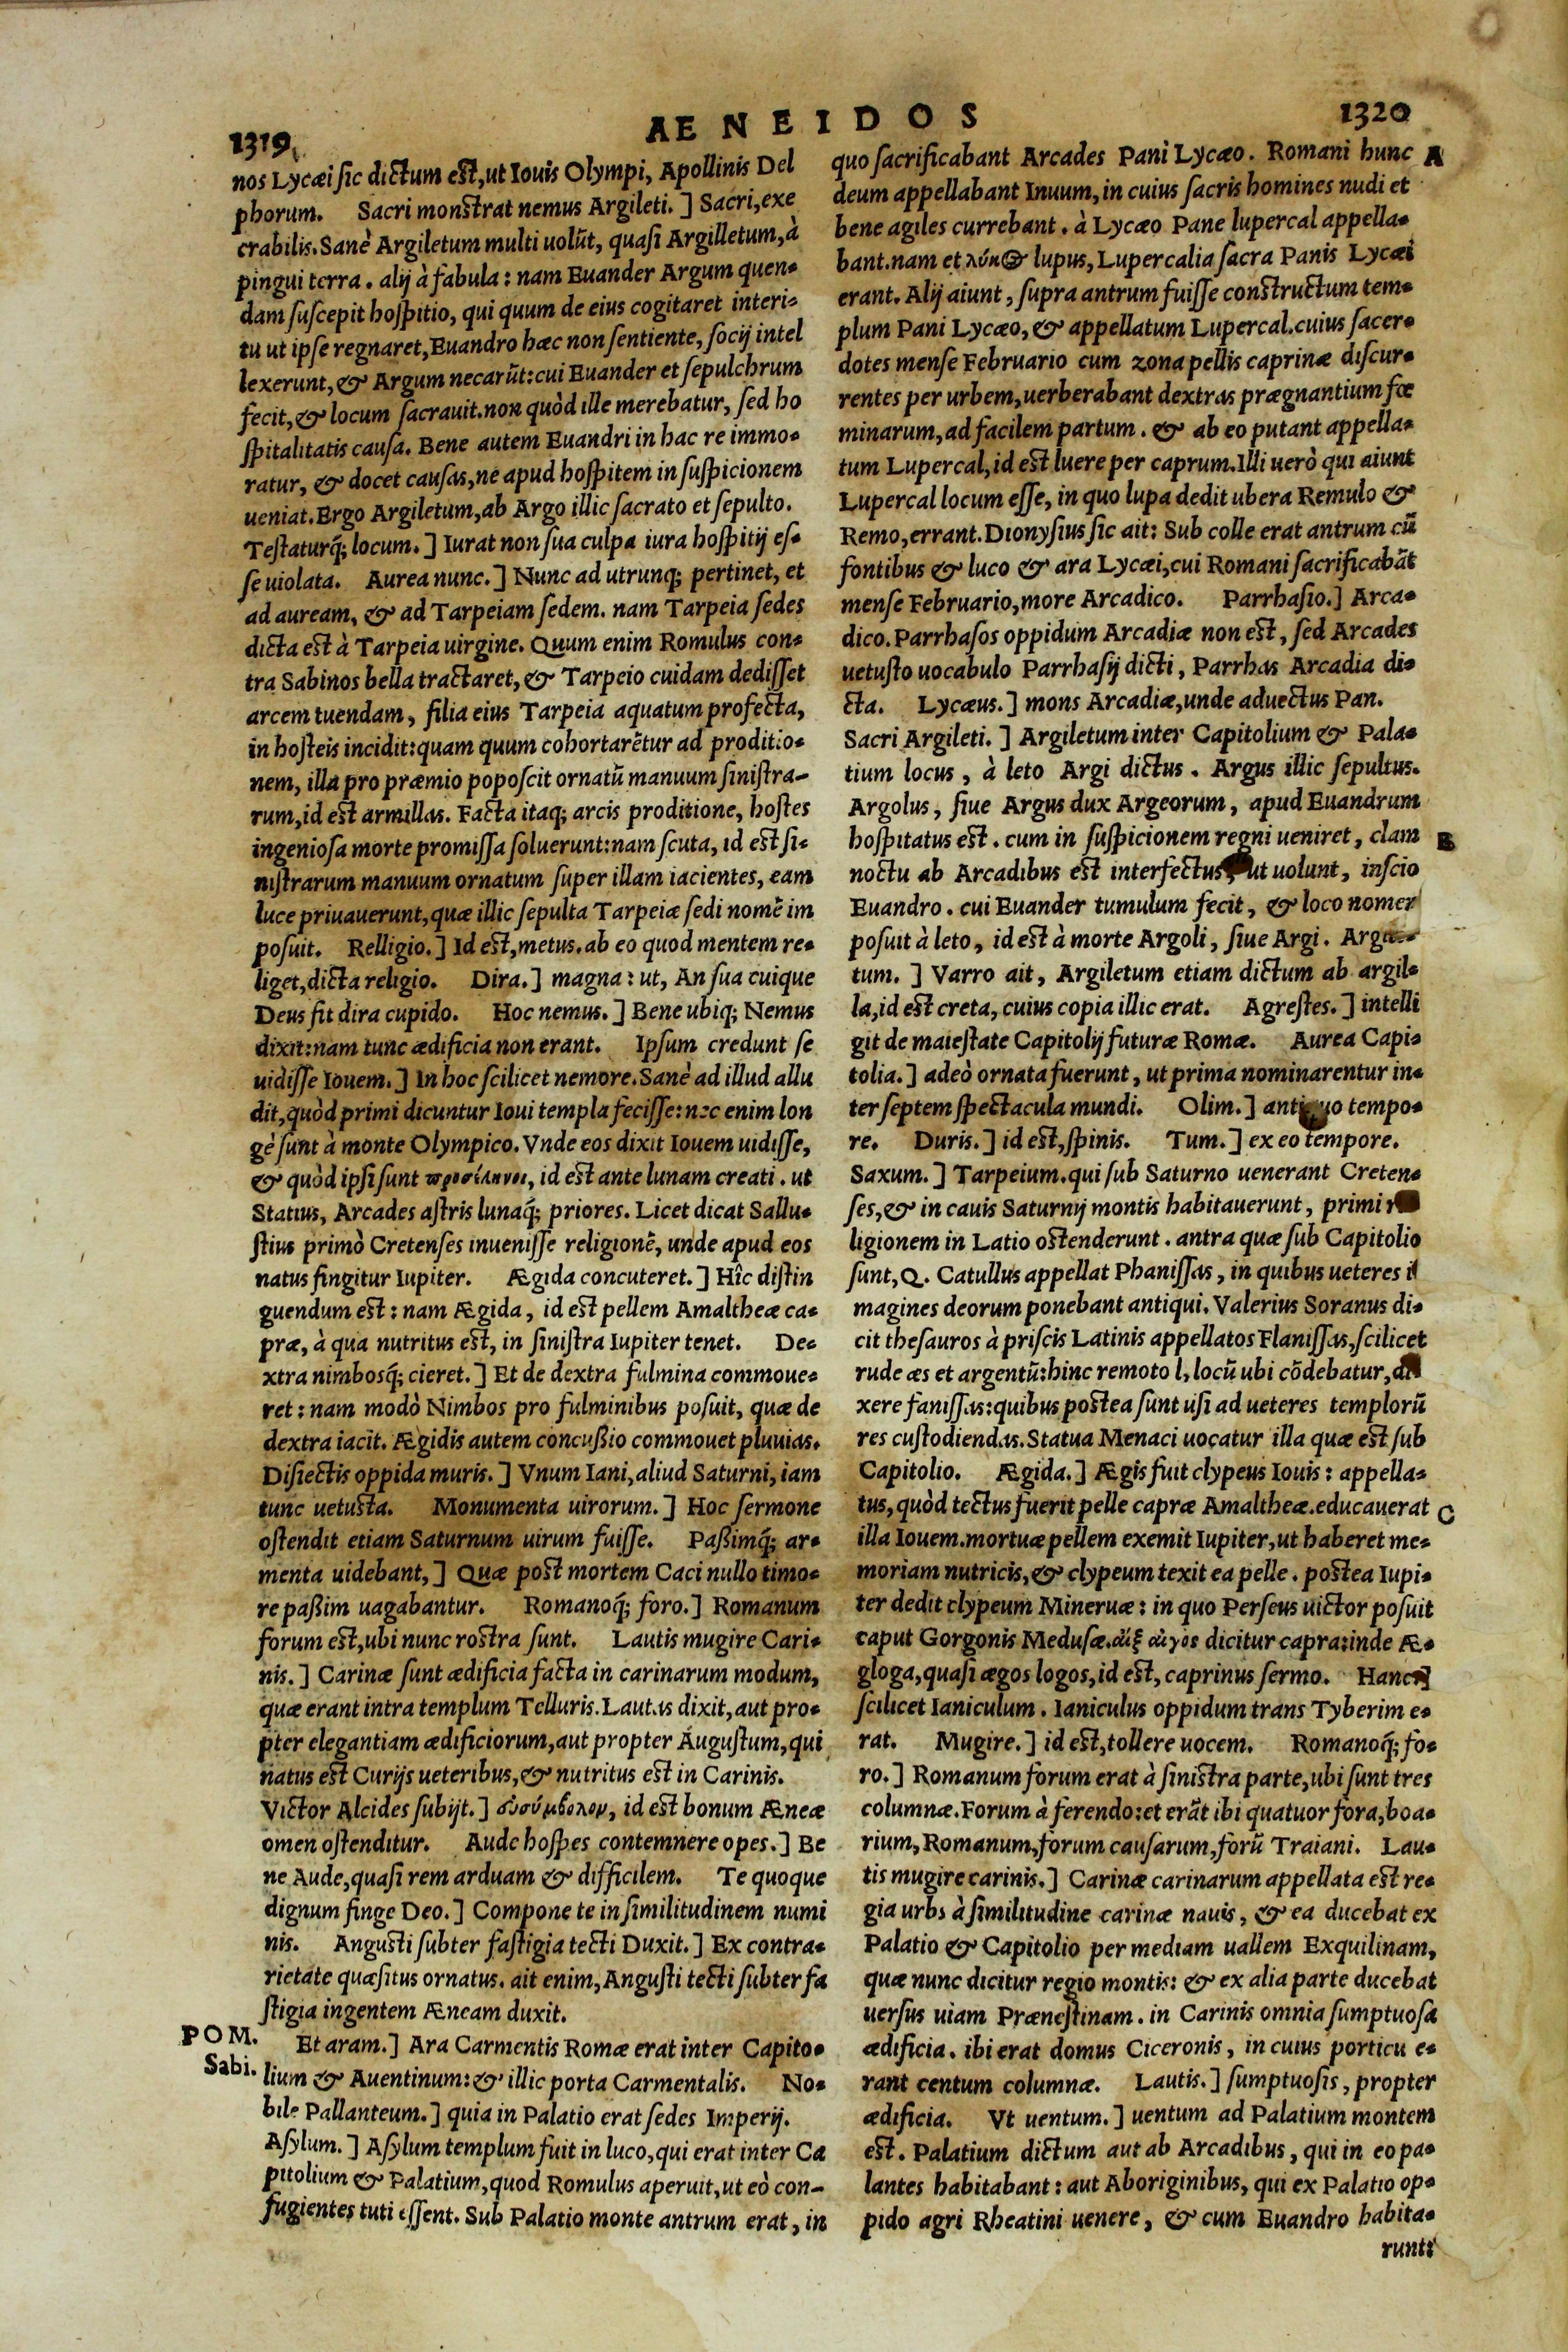 1319
AENEIDOS
1320
nos Lycæi sic dictum est, ut Iouis Olympi, Apollinis Del
phorum. Sacri monstrat nemus Argileti. ] Sacri, exe
crabilis. Sanè Argiletum multi uolũt, quasi Argilletum, à
pingui terra. alij à fabula: nam Euander Argum quen-
dam suscepit hospitio, qui quum de eius cogitaret interi-
tu ut ipse regnaret, Euandro hæc non sentiente, socij intel
lexerunt, & Argum necarũt: cui Euander et sepulchrum
fecit, & locum sacrauit. non quòd ille merebatur, sed ho
spitalitatis causa. Bene autem Euandri in hac re immo-
ratur, & docet causas, ne apud hospitem in suspicionem
ueniat. Ergo Argiletum, ab Argo illic sacrato et sepulto.
Testaturq́; locum. ] Iurat non sua culpa iura hospitij es-
se uiolata. Aurea nunc. ] Nunc ad utrunq; pertinet, et
ad auream, & ad Tarpeiam sedem. nam Tarpeia sedes
dicta est à Tarpeia uirgine. Quum enim Romulus con-
tra Sabinos bella tractaret, & Tarpeio cuidam dedisset
arcem tuendam, filia eius Tarpeia aquatum profecta,
in hosteis incidit: quam quum cohortarẽtur ad proditio-
nem, illa pro præmio poposcit ornatũ manuum sinistra-
rum, id est armillas. Facta itaq; arcis proditione, hostes
ingeniosa morte promissa soluerunt: nam scuta, id est si-
nistrarum manuum ornatum super illam iacientes, eam
luce priuauerunt, quæ illic sepulta Tarpeiæ sedi nomẽ im
posuit. Relligio. ] Id est, metus. ab eo quod mentem re-
liget, dicta religio. Dira. ] magna: ut, An sua cuique
Deus fit dira cupido. Hoc nemus. ] Bene ubiq; Nemus
dixit: nam tunc ædificia non erant. Ipsum credunt se
uidisse Iouem. ] In hoc scilicet nemore. Sanè ad illud allu
dit, quòd primi dicuntur Ioui templa fecisse: nec enim lon
gè sunt à monte Olympico. Vnde eos dixit Iouem uidisse,
& quòd ipsi sunt προσέληνοι, id est ante lunam creati. ut
Statius, Arcades astris lunaq́; priores. Licet dicat Sallu-
stius primò Cretenses inuenisse religionẽ, unde apud eos
natus fingitur Iupiter. Ægida concuteret. ] Hîc distin
guendum est: nam Ægida, id est pellem Amaltheæ ca-
præ, à qua nutritus est, in sinistra Iupiter tenet. De-
xtra nimbosq́; cieret. ] Et de dextra fulmina commoue-
ret: nam modò Nimbos pro fulminibus posuit, quæ de
dextra iacit. Ægidis autem concußio commouet pluuias.
Disiectis oppida muris. ] Vnum Iani, aliud Saturni, iam
tunc uetusta. Monumenta uirorum. ] Hoc sermone
ostendit etiam Saturnum uirum fuisse. Paßimq́; ar-
menta uidebant, ] Quæ post mortem Caci nullo timo-
re paßim uagabantur. Romanoq́; foro. ] Romanum
forum est, ubi nunc rostra sunt. Lautis mugire Cari-
nis. ] Carinæ sunt ædificia facta in carinarum modum,
quæ erant intra templum Telluris. Lautas dixit, aut pro-
pter elegantiam ædificiorum, aut propter Augustum, qui
natus est Curijs ueteribus, & nutritus est in Carinis.
Victor Alcides subijt. ] εὐσύμβολον, id est bonum Æneæ
omen ostenditur. Aude hospes contemnere opes. ] Be
ne Aude, quasi rem arduam & difficilem. Te quoque
dignum finge Deo. ] Compone te in similitudinem numi
nis. Angusti subter fastigia tecti Duxit. ] Ex contra-
rietate quæsitus ornatus. ait enim, Angusti tecti subter fa
stigia ingentem Æneam duxit.
POM.
Sabi.
Et aram. ] Ara Carmentis Romæ erat inter Capito-
lium & Auentinum: & illic porta Carmentalis. No-
bile Pallanteum. ] quia in Palatio erat sedes Imperij.
Asylum. ] Asylum templum fuit in luco, qui erat inter Ca
pitolium & Palatium, quod Romulus aperuit, ut eò con-
fugientes tuti essent. Sub Palatio monte antrum erat, in
quo sacrificabant Arcades Pani Lycæo. Romani hunc A
deum appellabant Inuum, in cuius sacris homines nudi et
bene agiles currebant. à Lycæo Pane lupercal appella-
bant. nam et λύκος lupus, Lupercalia sacra Panis Lycæi
erant. Alij aiunt, supra antrum fuisse constructum tem-
plum Pani Lycæo, & appellatum Lupercal. cuius sacer-
dotes mense Februario cum zona pellis caprinæ discur-
rentes per urbem, uerberabant dextras prægnantium fœ
minarum, ad facilem partum. & ab eo putant appella-
tum Lupercal, id est luere per caprum. Illi uerò qui aiunt
Lupercal locum esse, in quo lupa dedit ubera Remulo &
Remo, errant. Dionysius sic ait: Sub colle erat antrum cũ
fontibus & luco & ara Lycæi, cui Romani sacrificabãt
mense Februario, more Arcadico. Parrhasio. ] Arca-
dico. Parrhasos oppidum Arcadiæ non est, sed Arcades
uetusto uocabulo Parrhasij dicti, Parrhas Arcadia di-
cta. Lycæus. ] mons Arcadiæ, unde aduectus Pan.
Sacri Argileti. ] Argiletum inter Capitolium & Pala-
tium locus, à leto Argi dictus. Argus illic sepultus.
Argolus, siue Argus dux Argeorum, apud Euandrum
hospitatus est. cum in suspicionem regni ueniret, clam B
noctu ab Arcadibus est interfectus, ut uolunt, inscio
Euandro. cui Euander tumulum fecit, & loco nomen
posuit à leto, id est à morte Argoli, siue Argi.
tum. ] Varro ait, Argiletum etiam dictum ab argil-
la, id est creta, cuius copia illic erat. Agrestes. ] intelli
git de maiestate Capitolij futuræ Romæ. Aurea Capi-
tolia. ] adeò ornata fuerunt, ut prima nominarentur in-
ter septem spectacula mundi. Olim. ] antiquo tempo-
re. Duris. ] id est, spinis. Tum. ] ex eo tempore.
Saxum. ] Tarpeium. qui sub Saturno uenerant Creten-
ses, & in cauis Saturnij montis habitauerunt, primi
ligionem in Latio ostenderunt. antra quæ sub Capitolio
sunt, Q. Catullus appellat Phanissas, in quibus ueteres i
magines deorum ponebant antiqui. Valerius Soranus di-
cit thesauros à priscis Latinis appellatos Flanissas, scilicet
rude æs et argentũ: hinc remoto l, locũ ubi cõdebatur,
xere fanissas: quibus postea sunt usi ad ueteres templorũ
res custodiendas. Statua Menaci uocatur illa quæ est sub
Capitolio. Ægida. ] Ægis fuit clypeus Iouis: appella-
tus, quòd tectus fuerit pelle capræ Amaltheæ. educauerat C
illa Iouem. mortuæ pellem exemit Iupiter, ut haberet me-
moriam nutricis, & clypeum texit ea pelle. postea Iupi-
ter dedit clypeum Mineruæ: in quo Perseus uictor posuit
caput Gorgonis Medusæ. αἲξ αἰγὸς dicitur capra: inde Æ-
gloga, quasi ægos logos, id est, caprinus sermo. Hanc. ]
scilicet Ianiculum. Ianiculus oppidum trans Tyberim e-
rat. Mugire. ] id est, tollere uocem. Romanoq́; fo-
ro. ] Romanum forum erat à sinistra parte, ubi sunt tres
columnæ. Forum à ferendo: et erãt ibi quatuor fora, boa-
rium, Romanum, forum causarum, forũ Traiani. Lau-
tis mugire carinis. ] Carinæ carinarum appellata est re-
gia urbs à similitudine carinæ nauis, & ea ducebat ex
Palatio & Capitolio per mediam uallem Exquilinam,
quæ nunc dicitur regio montis: & ex alia parte ducebat
uersus uiam Prænestinam. in Carinis omnia sumptuosa
ædificia. ibi erat domus Ciceronis, in cuius porticu e-
rant centum columnæ. Lautis. ] sumptuosis, propter
ædificia. Vt uentum. ] uentum ad Palatium montem
est. Palatium dictum aut ab Arcadibus, qui in eo pa-
lantes habitabant: aut Aboriginibus, qui ex Palatio op-
pido agri Rheatini uenere, & cum Euandro habita-
runt: